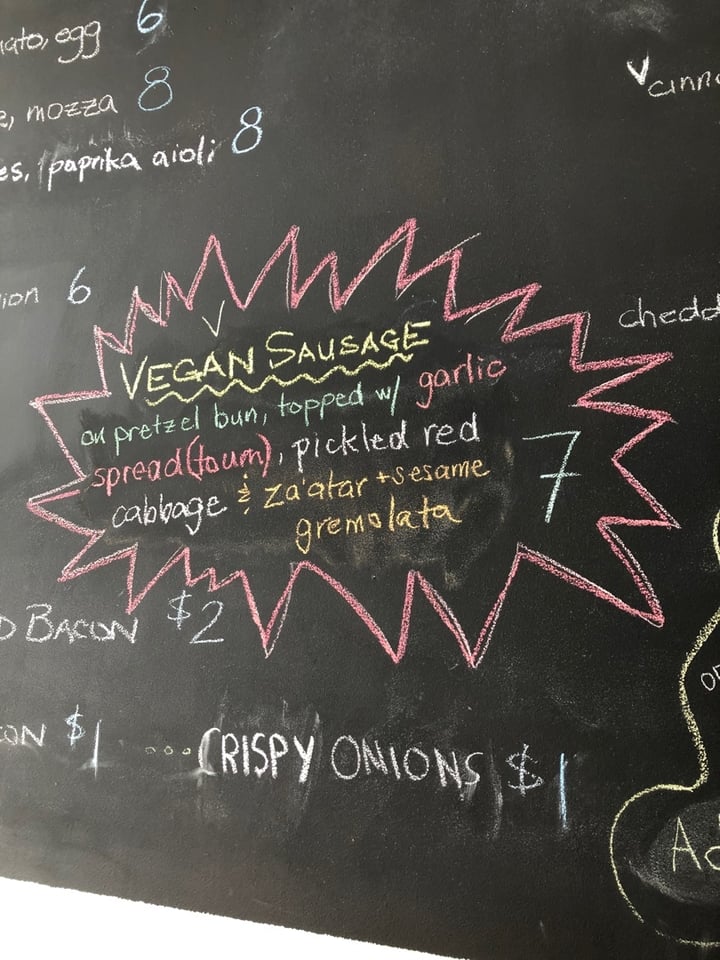 egg 6
mozza 8
paprika aioli 8
6
V
VEGAN SAUSAGE
on pretzel bun, topped w/ garlic
spread (toum), pickled red
cabbage & za'atar + sesame
gremolata
7
BACON $2
$1 ... CRISPY ONIONS $1